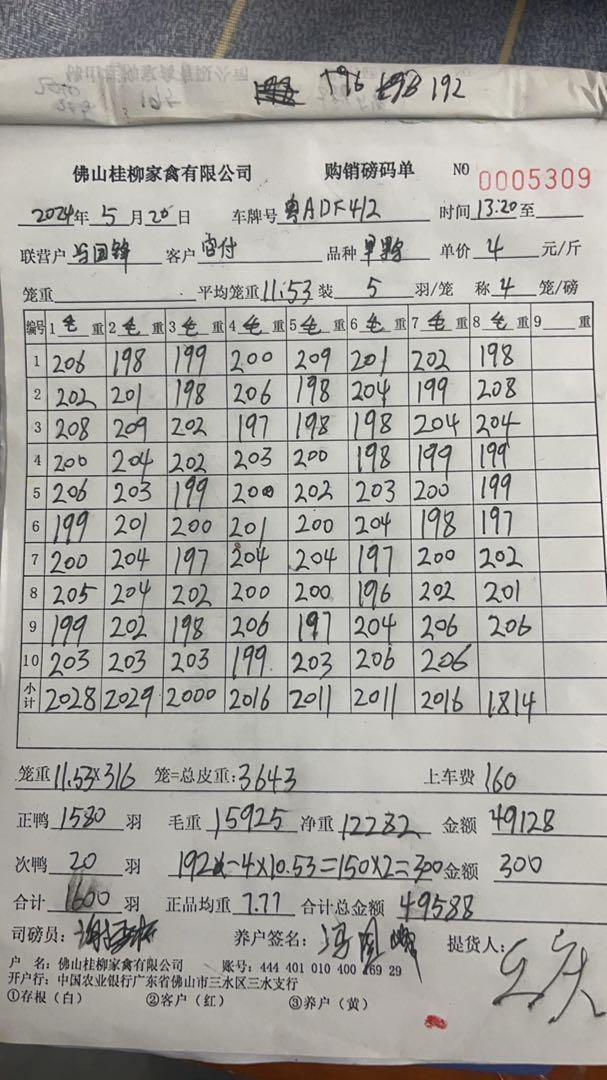 196 198 192
佛山桂柳家禽有限公司 购销磅码单 NO 0005309
2024年 5月 20日 车牌号 粤ADF412 时间 13:20至
联营户 客户 品种 单价 4 元/斤
笼重 平均笼重 11.53 装 5 羽/笼 称 4 笼/磅
编号 1 毛 重 2 毛 重 3 毛 重 4 毛 重 5 毛 重 6 毛 重 7 毛 重 8 毛 重 9 重
1 206 198 199 200 209 201 202 198
2 202 201 198 206 198 204 199 208
3 208 209 202 197 198 198 204 204
4 200 204 202 203 200 198 199 199
5 206 203 199 200 202 203 200 199
6 199 201 200 201 200 204 198 197
7 200 204 197 204 204 197 200 202
8 205 204 202 200 200 196 202 201
9 199 202 198 206 197 204 206 206
10 203 203 203 199 203 206 206
小计 2028 2029 2000 2016 2011 2011 2016 1814
笼重 11.53×316 笼=总皮重: 3643 上车费 160
正鸭 1580 羽 毛重 15925 净重 12282 金额 49128
次鸭 20 羽 192-4×10.53=150×2=300 金额 300
合计 1600 羽 正品均重 7.77 合计总金额 49588
司磅员: 养户签名: 提货人:
户 名: 佛山桂柳家禽有限公司 账号: 444 401 010 400 169 29
开户行: 中国农业银行广东省佛山市三水区三水支行
①存根(白) ②客户(红) ③养户(黄)